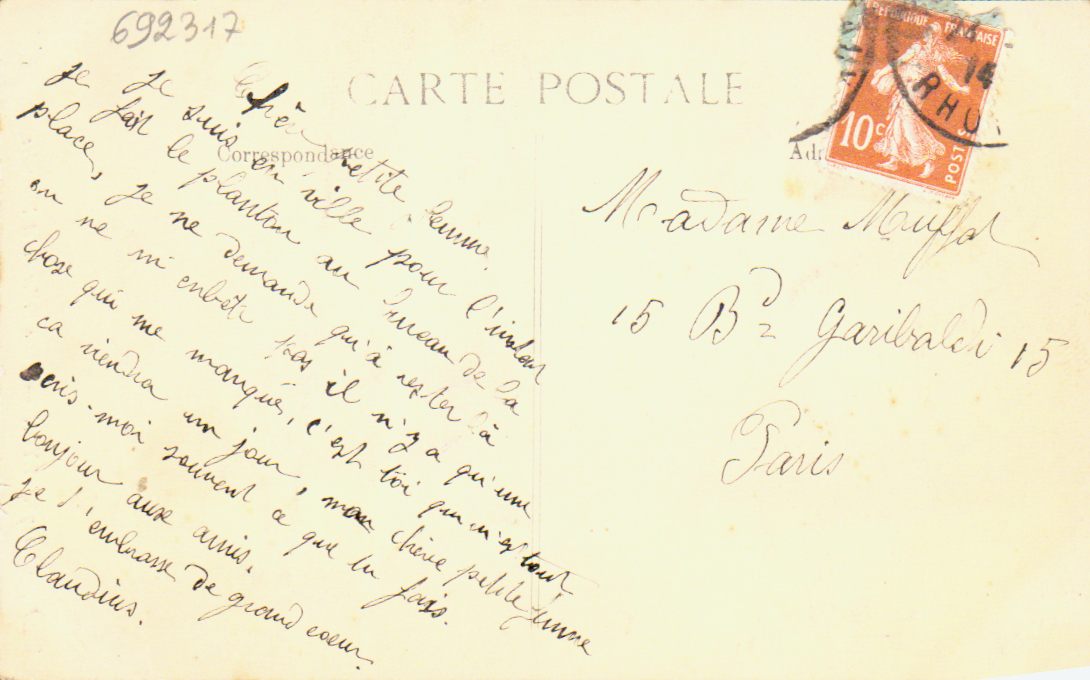 692317
CARTE POSTALE
Correspondance
RÉPUBLIQUE FRANÇAISE
10c
POSTES
14
RHO
Chère petite femme.
Je suis en ville pour l'instant
je fait le planton au bureau de la
place, je ne demande qu'à rester là
on ne m'enbete pas il n'y a qu'une
chose qui me manque, c'est toi qui m'est tout
ça viendra un jour, ma chère petite femme
écris-moi souvent ce que tu fais.
bonjour aux amis.
Je t'embrasse de grand coeur.
Claudius.
Madame Muffat
15 Bd Garibaldi 15
Paris